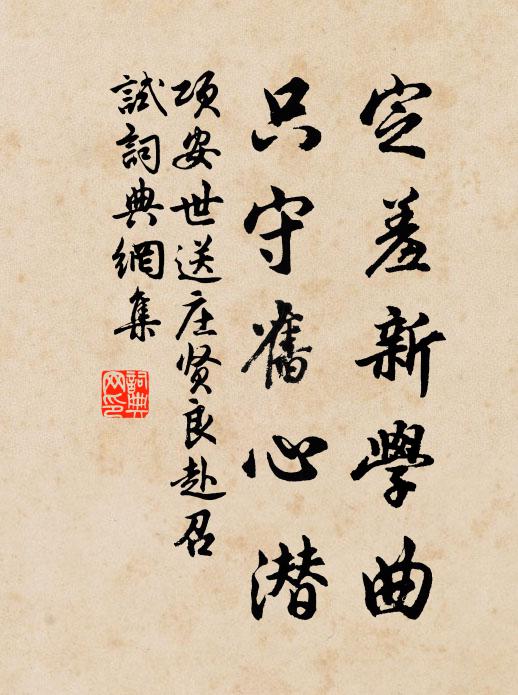 定羞新學曲
只守舊心潜
项安世送庄贤良赴召
試詞典網集
詞典網印